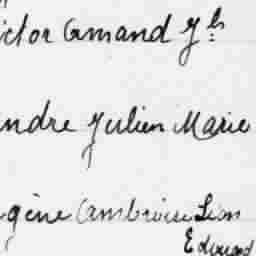 ictor Amand Jh
ndre Julien Marie
gène Ambroise Léon
Edouard